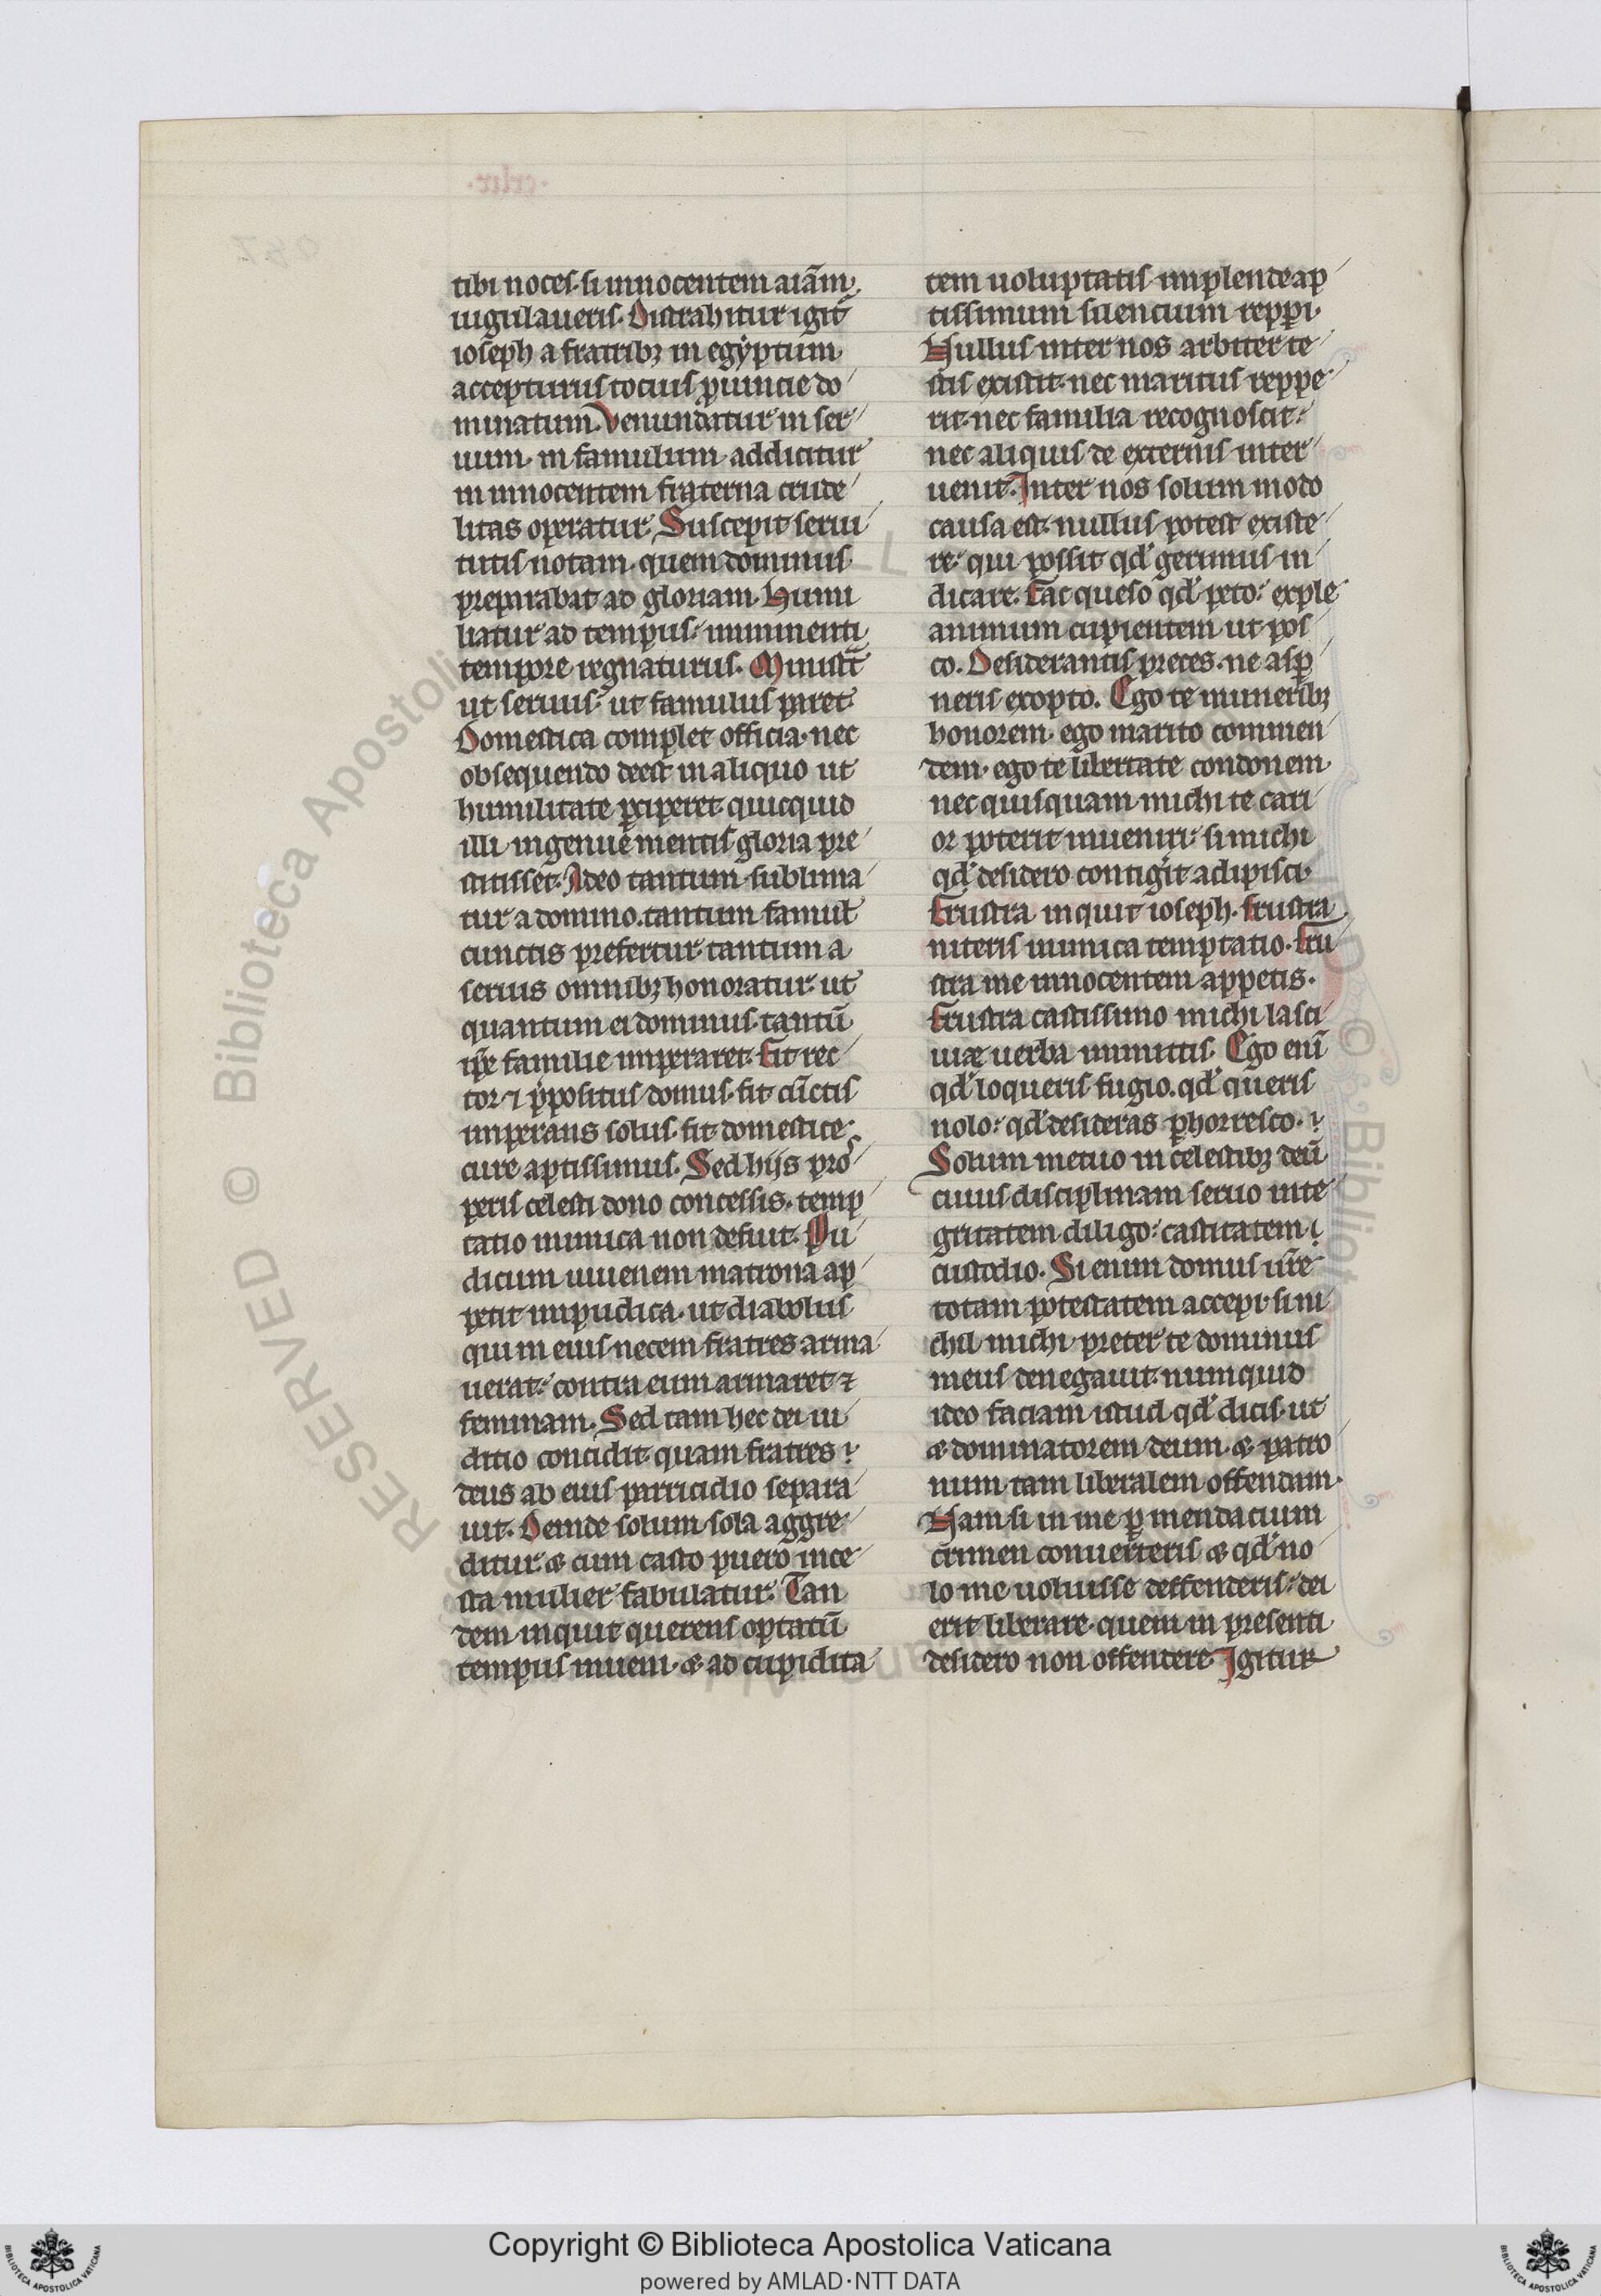 tibi noces· si innocentem aīam
iugulaueris. Distrahitur igit᷑
ioseph a fratribꝫ in egẏptum
accepturus tocius ꝓuincie do
minatum. Venundatur in ser
uum· in famulum addicitur
in innocentem fraterna crude
litas operatur. Suscepit serui
tutis notam· quem dominus
preparabat ad gloriam. Humi
liatur ad tempus· imminenti
tempore regnaturus. Ministrat᷑
ut seruus· ut famulus paret·
Domestica complet officia· nec
obsequendo deest in aliquo ut
humilitate ꝑciperet quicquid
illi ingenue mentis gloria pre
stitisset. Ideo tantum sublima
tur a domino. tantum famuł
cunctis prefertur· tantum a
seruis omnibꝫ honoratur· ut
quantum ei dominus· tantū
ip̄e familie imperaret. Fit rec
tor ⁊ p̄positus domus· fit cūctis
imperans solus· fit domestice
cure aptissimus. Sed hijs pros
peris celesti dono concessis· temp
tatio inimica non defuit. Pu
dicum iuuenem matrona ap
petit impudica· ut diabolus
qui in eius necem fratres arma
uerat· contra eum armaret ⁊
feminam. Sed tam hec dei iu
ditio concidit· quam fratres
deus ab eius parricidio separa
uit. Deinde solum sola aggre
ditur· & cum casto puero ince
sta mulier fabulatur. Tan
dem inquit querens optatū
tempus inueni· & ad cupidita
tem uoluptatis implende ap
tissimum silencium repperi·
Nullus inter nos arbiter te
stis existit· nec maritus reppe
rit· nec familia recognoscit·
nec aliquis de externis inter
uenit. Inter nos solum modo
causa est· nullus potest existe
re· qui possit qd᷑ gerimus in
dicare. Fac queso qd᷑ peto· exple
animum cupientem ut pos
co. Desiderantis preces· ne asꝑ
neris exopto. Ego te muneribꝫ
honorem· ego marito commen
dem· ego te libertate condonem
nec quisquam michi te cari
or poterit inueniri· si michi
qd᷑ desidero contigit adipisci·
Frustra inquit ioseph· frustra
niteris inimica temptatio· fru
stra me innocentem appetis·
Frustra castissimo michi lasci
uiæ uerba inmittis. Ego enī
qd᷑ loqueris fugio. qd᷑ queris
nolo· qd᷑ desideras ꝑhorresco·
Solum metuo in celestibꝫ deū
cuius disciplinam seruo inte
gritatem diligo· castitatem
custodio. Si enim domus ur̄e
totam potestatem accepi· si ni
chil michi preter te dominus
meus denegauit· numquid
ideo faciam istud qd᷑ dicis· ut
& dominatorem deum· & patro
num tam liberalem offendam·
Nam si in me ꝑ mendacium
crimen conuerteris & qd᷑ no
lo me uoluisse deffenderis· dei
erit liberare· quem in presenti
desidero non offendere. Igitur
Copyright © Biblioteca Apostolica Vaticana
powered by AMLAD·NTT DATA